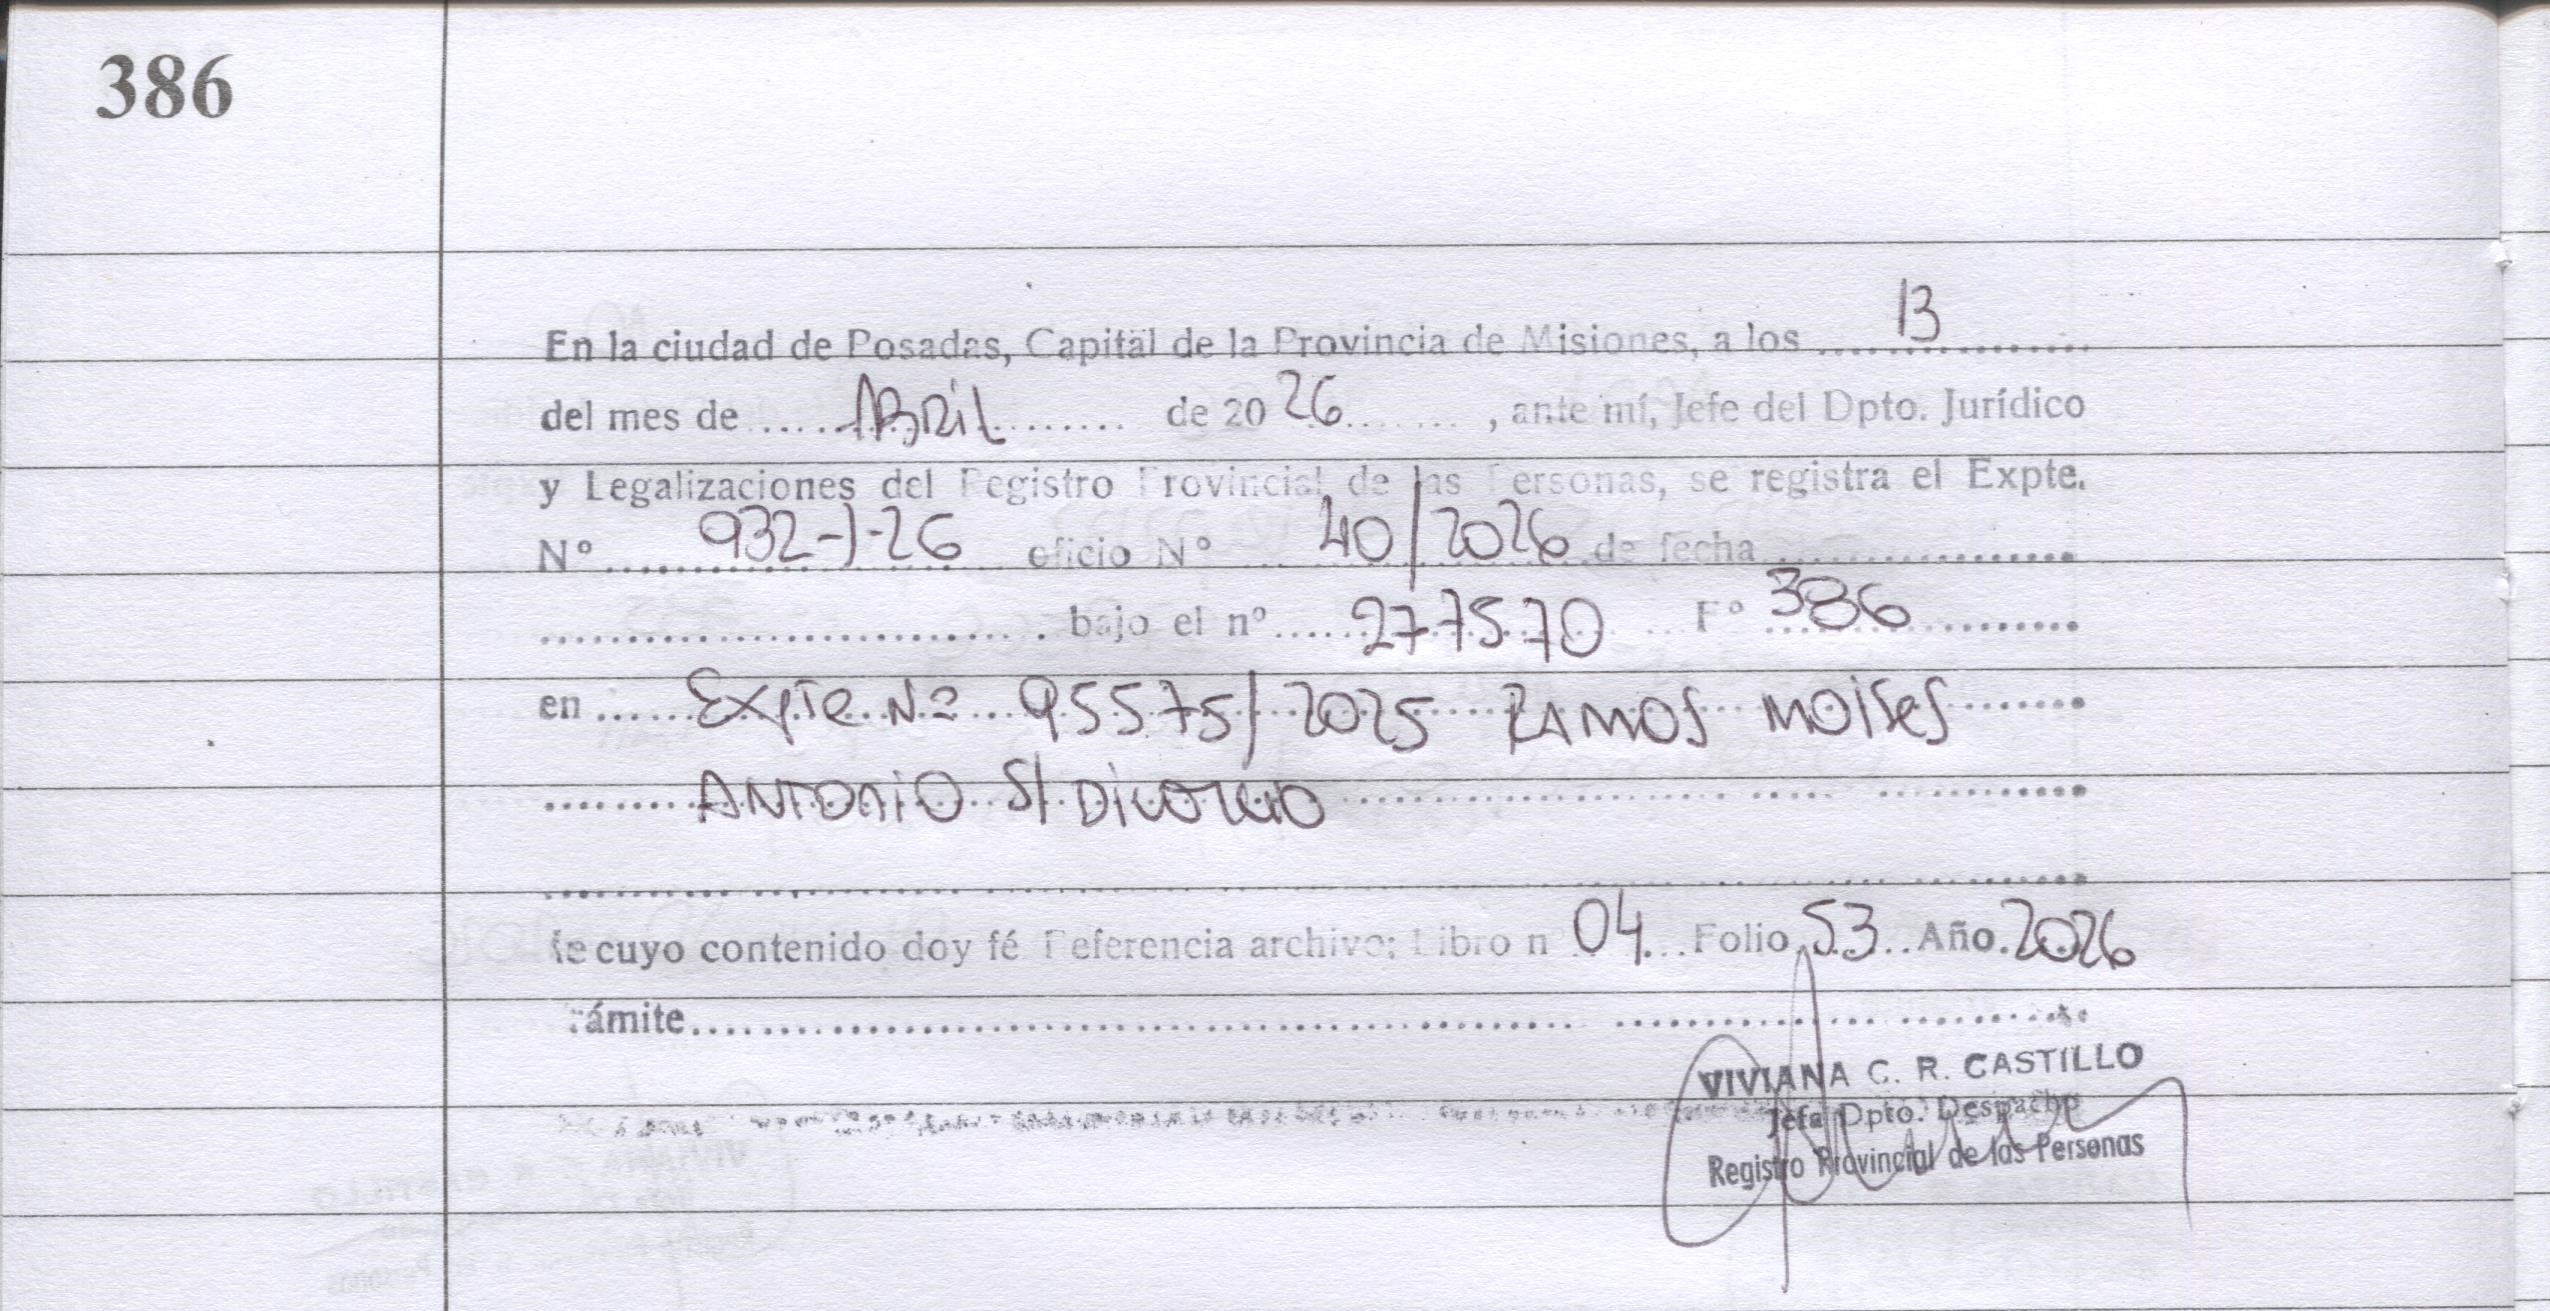 386
En la ciudad de Posadas, Capital de la Provincia de Misiones, a los 13
del mes de ABRIL de 2026, ante mí, Jefe del Dpto. Jurídico
y Legalizaciones del Registro Provincial de las Personas, se registra el Expte.
N° 932-J-26 oficio N° 40/2026 de fecha
bajo el n° 277570 F° 386
en Expte Nº 95575/2025 RAMOS MOISES
ANTONIO S/ DIVORCIO
de cuyo contenido doy fé Referencia archivo: Libro n 04 Folio 53 Año 2026
trámite
VIVIANA C. R. CASTILLO
Jefa Dpto. Despacho
Registro Provincial de las Personas